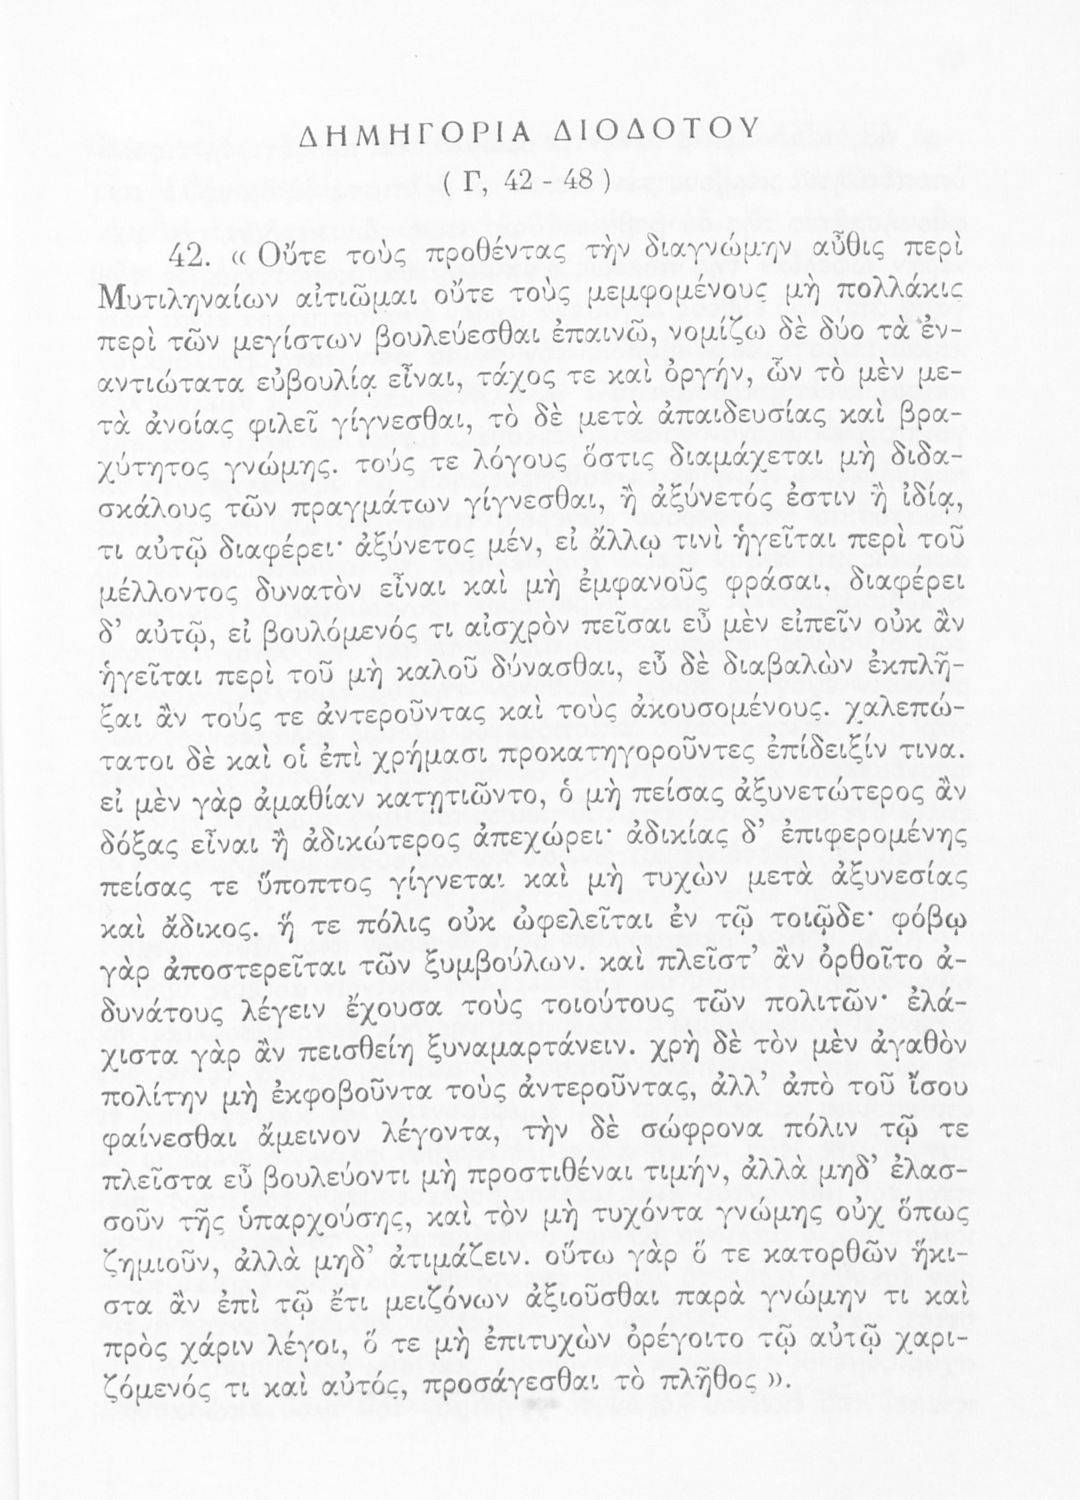 ΔΗΜΗΓΟΡΙΑ ΔΙΟΔΟΤΟΥ
( Γ, 42 - 48 )
42. « Οὔτε τοὺς προθέντας τὴν διαγνώμην αὖθις περὶ
Μυτιληναίων αἰτιῶμαι οὔτε τοὺς μεμφομένους μὴ πολλάκις
περὶ τῶν μεγίστων βουλεύεσθαι ἐπαινῶ, νομίζω δὲ δύο τὰ ἐν-
αντιώτατα εὐβουλίᾳ εἶναι, τάχος τε καὶ ὀργήν, ὧν τὸ μὲν με-
τὰ ἀνοίας φιλεῖ γίγνεσθαι, τὸ δὲ μετὰ ἀπαιδευσίας καὶ βρα-
χύτητος γνώμης. τούς τε λόγους ὅστις διαμάχεται μὴ διδα-
σκάλους τῶν πραγμάτων γίγνεσθαι, ἢ ἀξύνετός ἐστιν ἢ ἰδίᾳ,
τι αὐτῷ διαφέρει· ἀξύνετος μέν, εἰ ἄλλῳ τινὶ ἡγεῖται περὶ τοῦ
μέλλοντος δυνατὸν εἶναι καὶ μὴ ἐμφανοῦς φράσαι, διαφέρει
δ’ αὐτῷ, εἰ βουλόμενός τι αἰσχρὸν πεῖσαι εὖ μὲν εἰπεῖν οὐκ ἂν
ἡγεῖται περὶ τοῦ μὴ καλοῦ δύνασθαι, εὖ δὲ διαβαλὼν ἐκπλῆ-
ξαι ἂν τούς τε ἀντεροῦντας καὶ τοὺς ἀκουσομένους. χαλεπώ-
τατοι δὲ καὶ οἱ ἐπὶ χρήμασι προκατηγοροῦντες ἐπίδειξίν τινα.
εἰ μὲν γὰρ ἀμαθίαν κατῃτιῶντο, ὁ μὴ πείσας ἀξυνετώτερος ἂν
δόξας εἶναι ἢ ἀδικώτερος ἀπεχώρει· ἀδικίας δ’ ἐπιφερομένης
πείσας τε ὕποπτος γίγνεται καὶ μὴ τυχὼν μετὰ ἀξυνεσίας
καὶ ἄδικος. ἥ τε πόλις οὐκ ὠφελεῖται ἐν τῷ τοιῷδε· φόβῳ
γὰρ ἀποστερεῖται τῶν ξυμβούλων. καὶ πλεῖστ’ ἂν ὀρθοῖτο ἀ-
δυνάτους λέγειν ἔχουσα τοὺς τοιούτους τῶν πολιτῶν· ἐλά-
χιστα γὰρ ἂν πεισθείη ξυναμαρτάνειν. χρὴ δὲ τὸν μὲν ἀγαθὸν
πολίτην μὴ ἐκφοβοῦντα τοὺς ἀντεροῦντας, ἀλλ’ ἀπὸ τοῦ ἴσου
φαίνεσθαι ἄμεινον λέγοντα, τὴν δὲ σώφρονα πόλιν τῷ τε
πλεῖστα εὖ βουλεύοντι μὴ προστιθέναι τιμήν, ἀλλὰ μηδ’ ἐλασ-
σοῦν τῆς ὑπαρχούσης, καὶ τὸν μὴ τυχόντα γνώμης οὐχ ὅπως
ζημιοῦν, ἀλλὰ μηδ’ ἀτιμάζειν. οὕτω γὰρ ὅ τε κατορθῶν ἥκι-
στα ἂν ἐπὶ τῷ ἔτι μειζόνων ἀξιοῦσθαι παρὰ γνώμην τι καὶ
πρὸς χάριν λέγοι, ὅ τε μὴ ἐπιτυχὼν ὀρέγοιτο τῷ αὐτῷ χαρι-
ζόμενός τι καὶ αὐτός, προσάγεσθαι τὸ πλῆθος ».